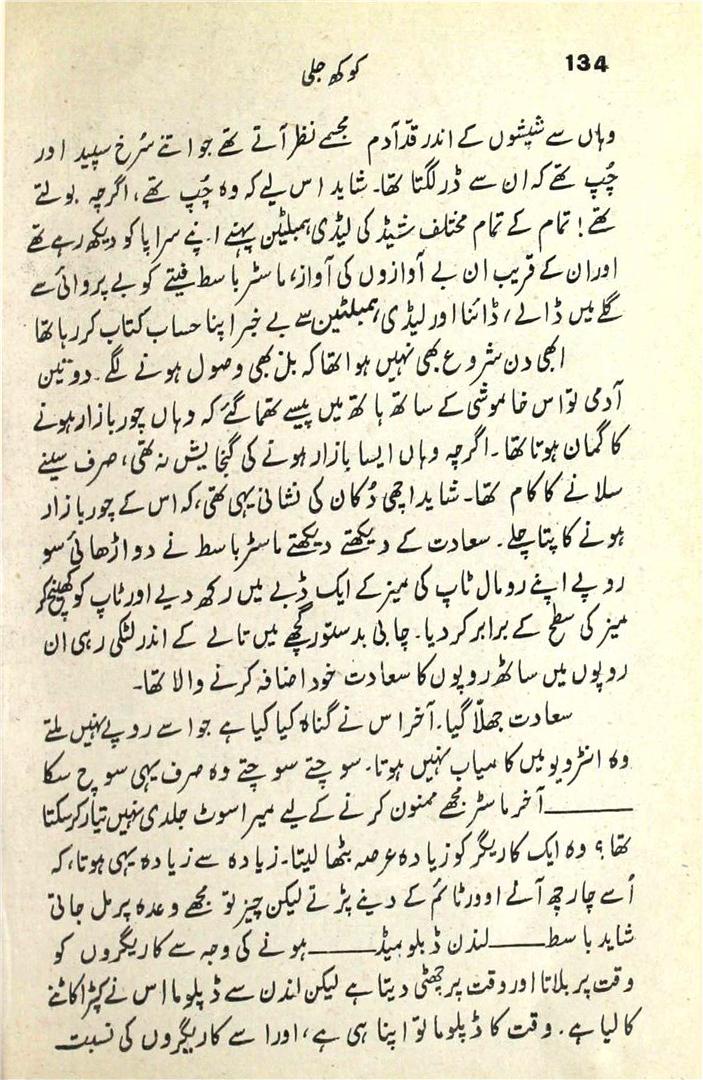 134
کوکھ جلی
وہاں سے شیشوں کے اندر قدِّآدم مجسمے نظر آتے تھے جو اتنے سُرخ سپید اور
چُپ تھے کہ ان سے ڈر لگتا تھا۔ شاید اس لیے کہ وہ چُپ تھے، اگرچہ بولتے
تھے! تمام کے تمام مختلف شیڈ کی لیڈی ہمبلٹین پہنے اپنے سراپا کو دیکھ رہے تھے
اور ان کے قریب ان بے آوازوں کی آواز، ماسٹر باسط فیتے کو بے پروائی سے
گلے میں ڈالے، ڈائنا اور لیڈی ہمبلٹین سے بے خبر اپنا حساب کتاب کر رہا تھا
ابھی دن شروع بھی نہیں ہوا تھا کہ بل بھی وصول ہونے لگے۔ دو تین
آدمی تو اس خاموشی کے ساتھ ہاتھ میں پیسے تھما گئے کہ وہاں چور بازار ہونے
کا گمان ہوتا تھا۔ اگرچہ وہاں ایسا بازار ہونے کی گنجایش نہ تھی، صرف سینے
سلانے کا کام تھا۔ شاید اچھی دُکان کی نشانی یہی تھی، کہ اس کے چور بازار
ہونے کا پتا چلے۔ سعادت کے دیکھتے دیکھتے ماسٹر باسط نے دو اڑھائی سو
روپے اپنے رومال ٹاپ کی میز کے ایک ڈبے میں رکھ دیے اور ٹاپ کو کھینچ کر
میز کی سطح کے برابر کر دیا۔ چابی بدستور گچھے میں تالے کے اندر لٹکی رہی ان
روپوں میں ساٹھ روپوں کا سعادت خود اضافہ کرنے والا تھا۔
سعادت جھلّا گیا۔ آخر اس نے گناہ کیا کیا ہے جو اسے روپے نہیں ملتے
وہ انٹرویو میں کامیاب نہیں ہوتا۔ سوچتے سوچتے وہ صرف یہی سوچ سکا
——— آخر ماسٹر مجھے ممنون کرنے کے لیے میرا سوٹ جلدی نہیں تیار کر سکتا
تھا؟ وہ ایک کاریگر کو زیادہ عرصہ بٹھا لیتا۔ زیادہ سے زیادہ یہی ہوتا، کہ
اُسے چار چھ آنے اوورٹائم کے دینے پڑتے لیکن چیز تو مجھے وعدہ پر مل جاتی
شاید باسط ——— لنڈن ڈپلومیڈ ——— ہونے کی وجہ سے کاریگروں کو
وقت پر بلاتا اور وقت پر چھٹی دیتا ہے لیکن لندن سے ڈپلوما اس نے کپڑا کاٹنے
کا لیا ہے۔ وقت کا ڈپلوما تو اپنا ہی ہے، اور اسے کاریگروں کی نسبت